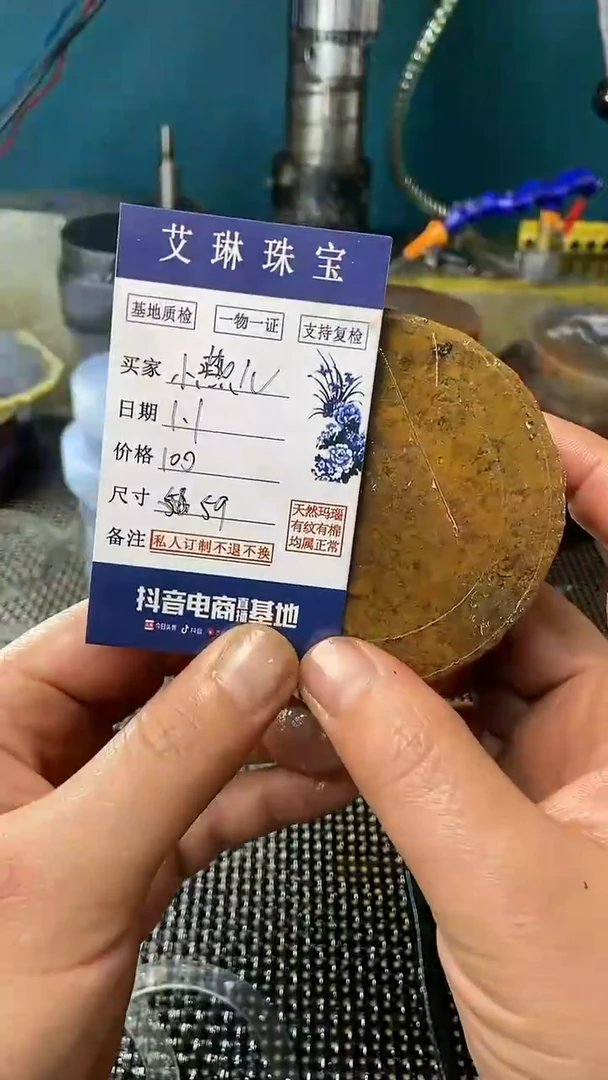 艾琳珠宝
基地质检 一物一证 支持复检
买家 小燕儿
日期 1.1
价格 100
尺寸 59
备注 私人订制不退不换
天然玛瑙
有纹有棉
均属正常
抖音电商直播基地
今日头条 抖音